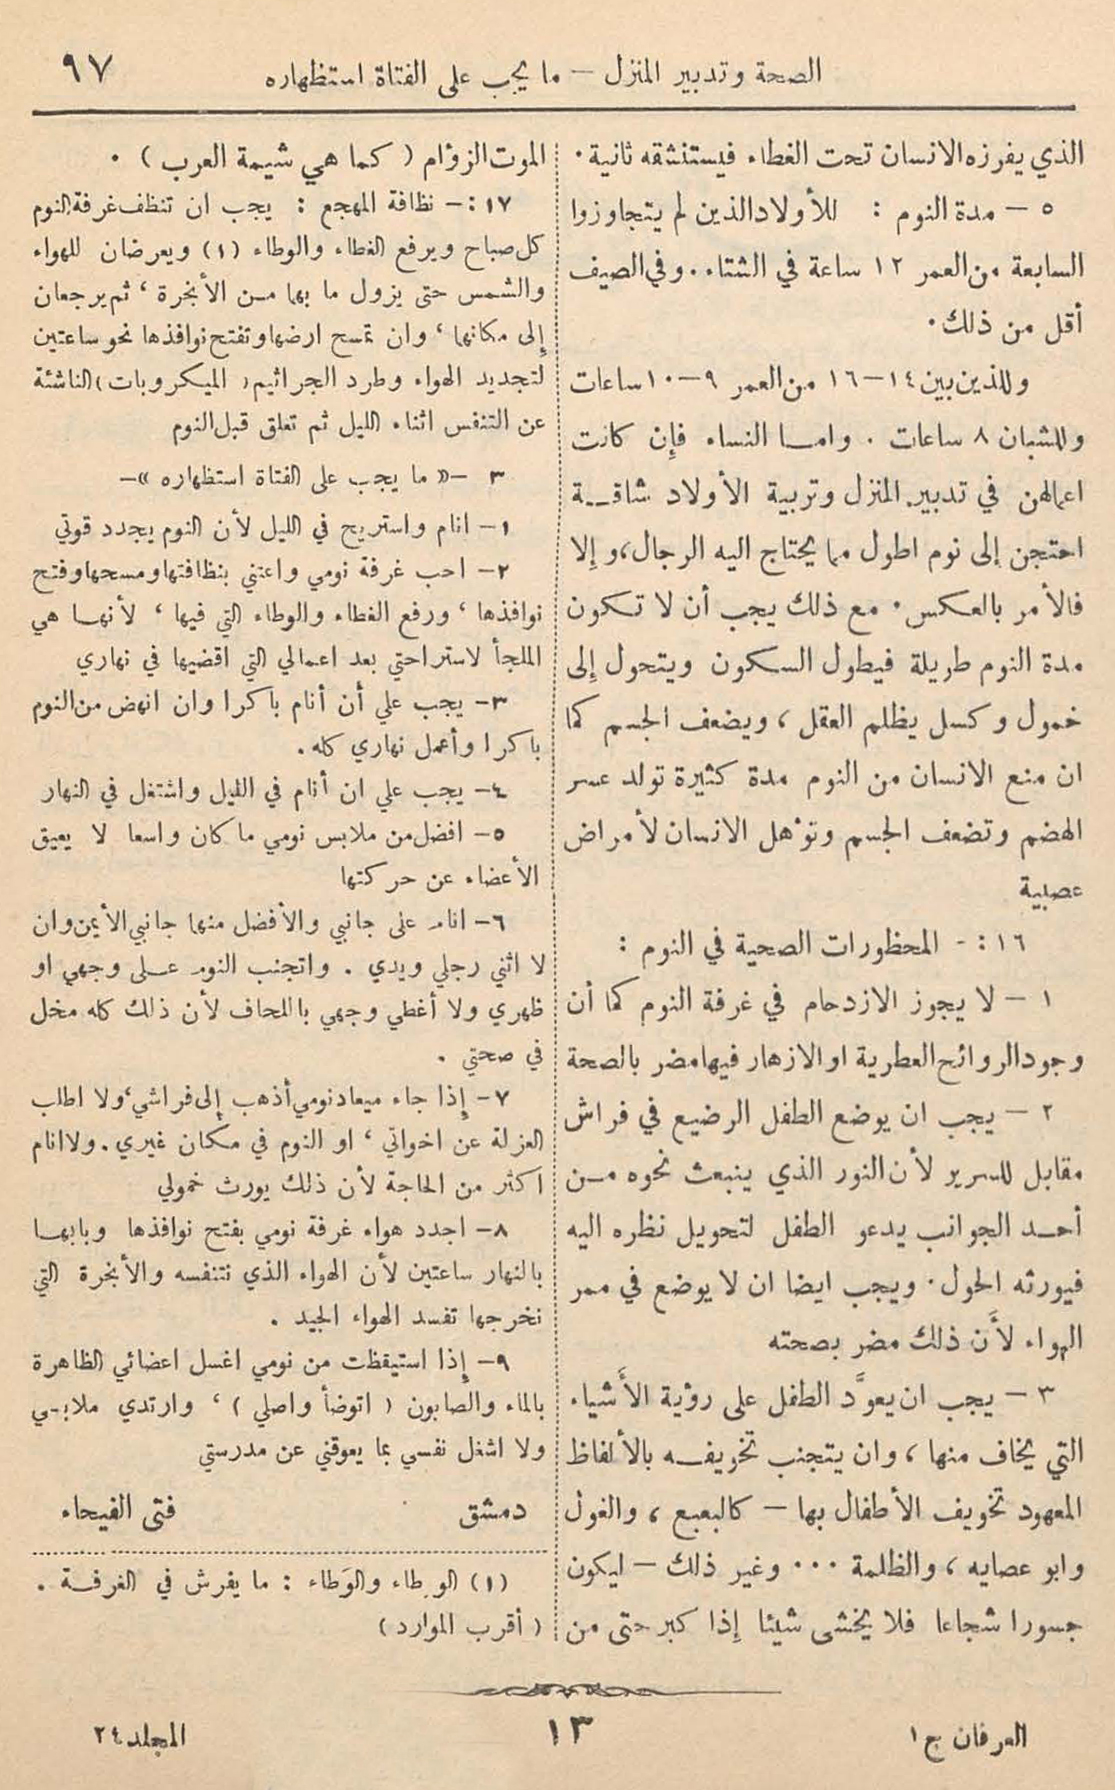 الصحة وتدبير المنزل — ما يجب على الفتاة استظهاره
٩٧
الذي يفرزه الانسان تحت الغطاء فيستنشقه ثانية .
٥ — مدة النوم : للأولاد الذين لم يتجاوزوا
السابعة من العمر ١٢ ساعة في الشتاء . وفي الصيف
أقل من ذلك .
وللذين بين ١٤—١٦ من العمر ٩—١٠ ساعات
وللشبان ٨ ساعات . واما النساء فإن كانت
اعمالهن في تدبير المنزل وتربية الأولاد شاقة
احتجن إلى نوم اطول مما يحتاج اليه الرجال، وإلا
فالأمر بالعكس . مع ذلك يجب أن لا تكون
مدة النوم طويلة فيطول السكون ويتحول إلى
خمول وكسل يظلم العقل ، ويضعف الجسم كما
ان منع الانسان من النوم مدة كثيرة تولد عسر
الهضم وتضعف الجسم وتؤهل الانسان لأمراض
عصبية
١٦ : - المحظورات الصحية في النوم :
١ — لا يجوز الازدحام في غرفة النوم كما أن
وجود الروائح العطرية او الازهار فيها مضر بالصحة
٢ — يجب ان يوضع الطفل الرضيع في فراش
مقابل للسرير لأن النور الذي ينبعث نحوه من
أحد الجوانب يدعو الطفل لتحويل نظره اليه
فيورثه الحول . ويجب ايضا ان لا يوضع في ممر
الهواء لأن ذلك مضر بصحته
٣ — يجب ان يعوَّد الطفل على رؤية الأشياء
التي يخاف منها ، وان يتجنب تخويفه بالألفاظ
المعهود تخويف الأطفال بها — كالبعبع ، والغول
وابو عصايه ، والظلمة ... وغير ذلك — ليكون
جسورا شجاعا فلا يخشى شيئا إذا كبر حتى من
الموت الزؤام ( كما هي شيمة العرب ) .
١٧ : — نظافة المهجع : يجب ان تنظف غرفة النوم
كل صباح ويرفع الغطاء والوطاء (١) ويعرضان للهواء
والشمس حتى يزول ما بها من الأبخرة ، ثم يرجعان
إلى مكانها ، وان تمسح ارضها وتفتح نوافذها نحو ساعتين
لتجديد الهواء وطرد الجراثيم ( الميكروبات ) الناشئة
عن التنفس اثناء الليل ثم تغلق قبل النوم
٣ —« ما يجب على الفتاة استظهاره »—
١— انام واستريح في الليل لأن النوم يجدد قوتي
٢— احب غرفة نومي واعتني بنظافتها ومسحها وفتح
نوافذها ، ورفع الغطاء والوطاء التي فيها ، لأنها هي
الملجأ لاستراحتي بعد اعمالي التي اقضيها في نهاري
٣— يجب علي أن أنام باكرا وان انهض من النوم
باكرا وأعمل نهاري كله .
٤— يجب علي ان أنام في الليل واشتغل في النهار
٥— افضل من ملابس نومي ما كان واسعا لا يعيق
الأعضاء عن حركتها
٦— انام على جانبي والأفضل منها جانبي الأيمن وان
لا اثني رجلي ويدي . واتجنب النوم على وجهي او
ظهري ولا أغطي وجهي باللحاف لأن ذلك كله مخل
في صحتي .
٧— إذا جاء ميعاد نومي أذهب إلى فراشي، ولا اطلب
العزلة عن اخواتي ، او النوم في مكان غيري . ولا انام
اكثر من الحاجة لأن ذلك يورث خمولي
٨— اجدد هواء غرفة نومي بفتح نوافذها وبابها
بالنهار ساعتين لأن الهواء الذي نتنفسه والأبخرة التي
نخرجها تفسد الهواء الجيد .
٩— إذا استيقظت من نومي اغسل اعضائي الظاهرة
بالماء والصابون ( اتوضأ واصلي ) ، وارتدي ملابسي
ولا اشغل نفسي بما يعوقني عن مدرستي
دمشق فتى الفيحاء
(١) الوِطاء والوَطاء : ما يفرش في الغرفة .
( أقرب الموارد )
العرفان ج١
١٣
المجلد ٢٤